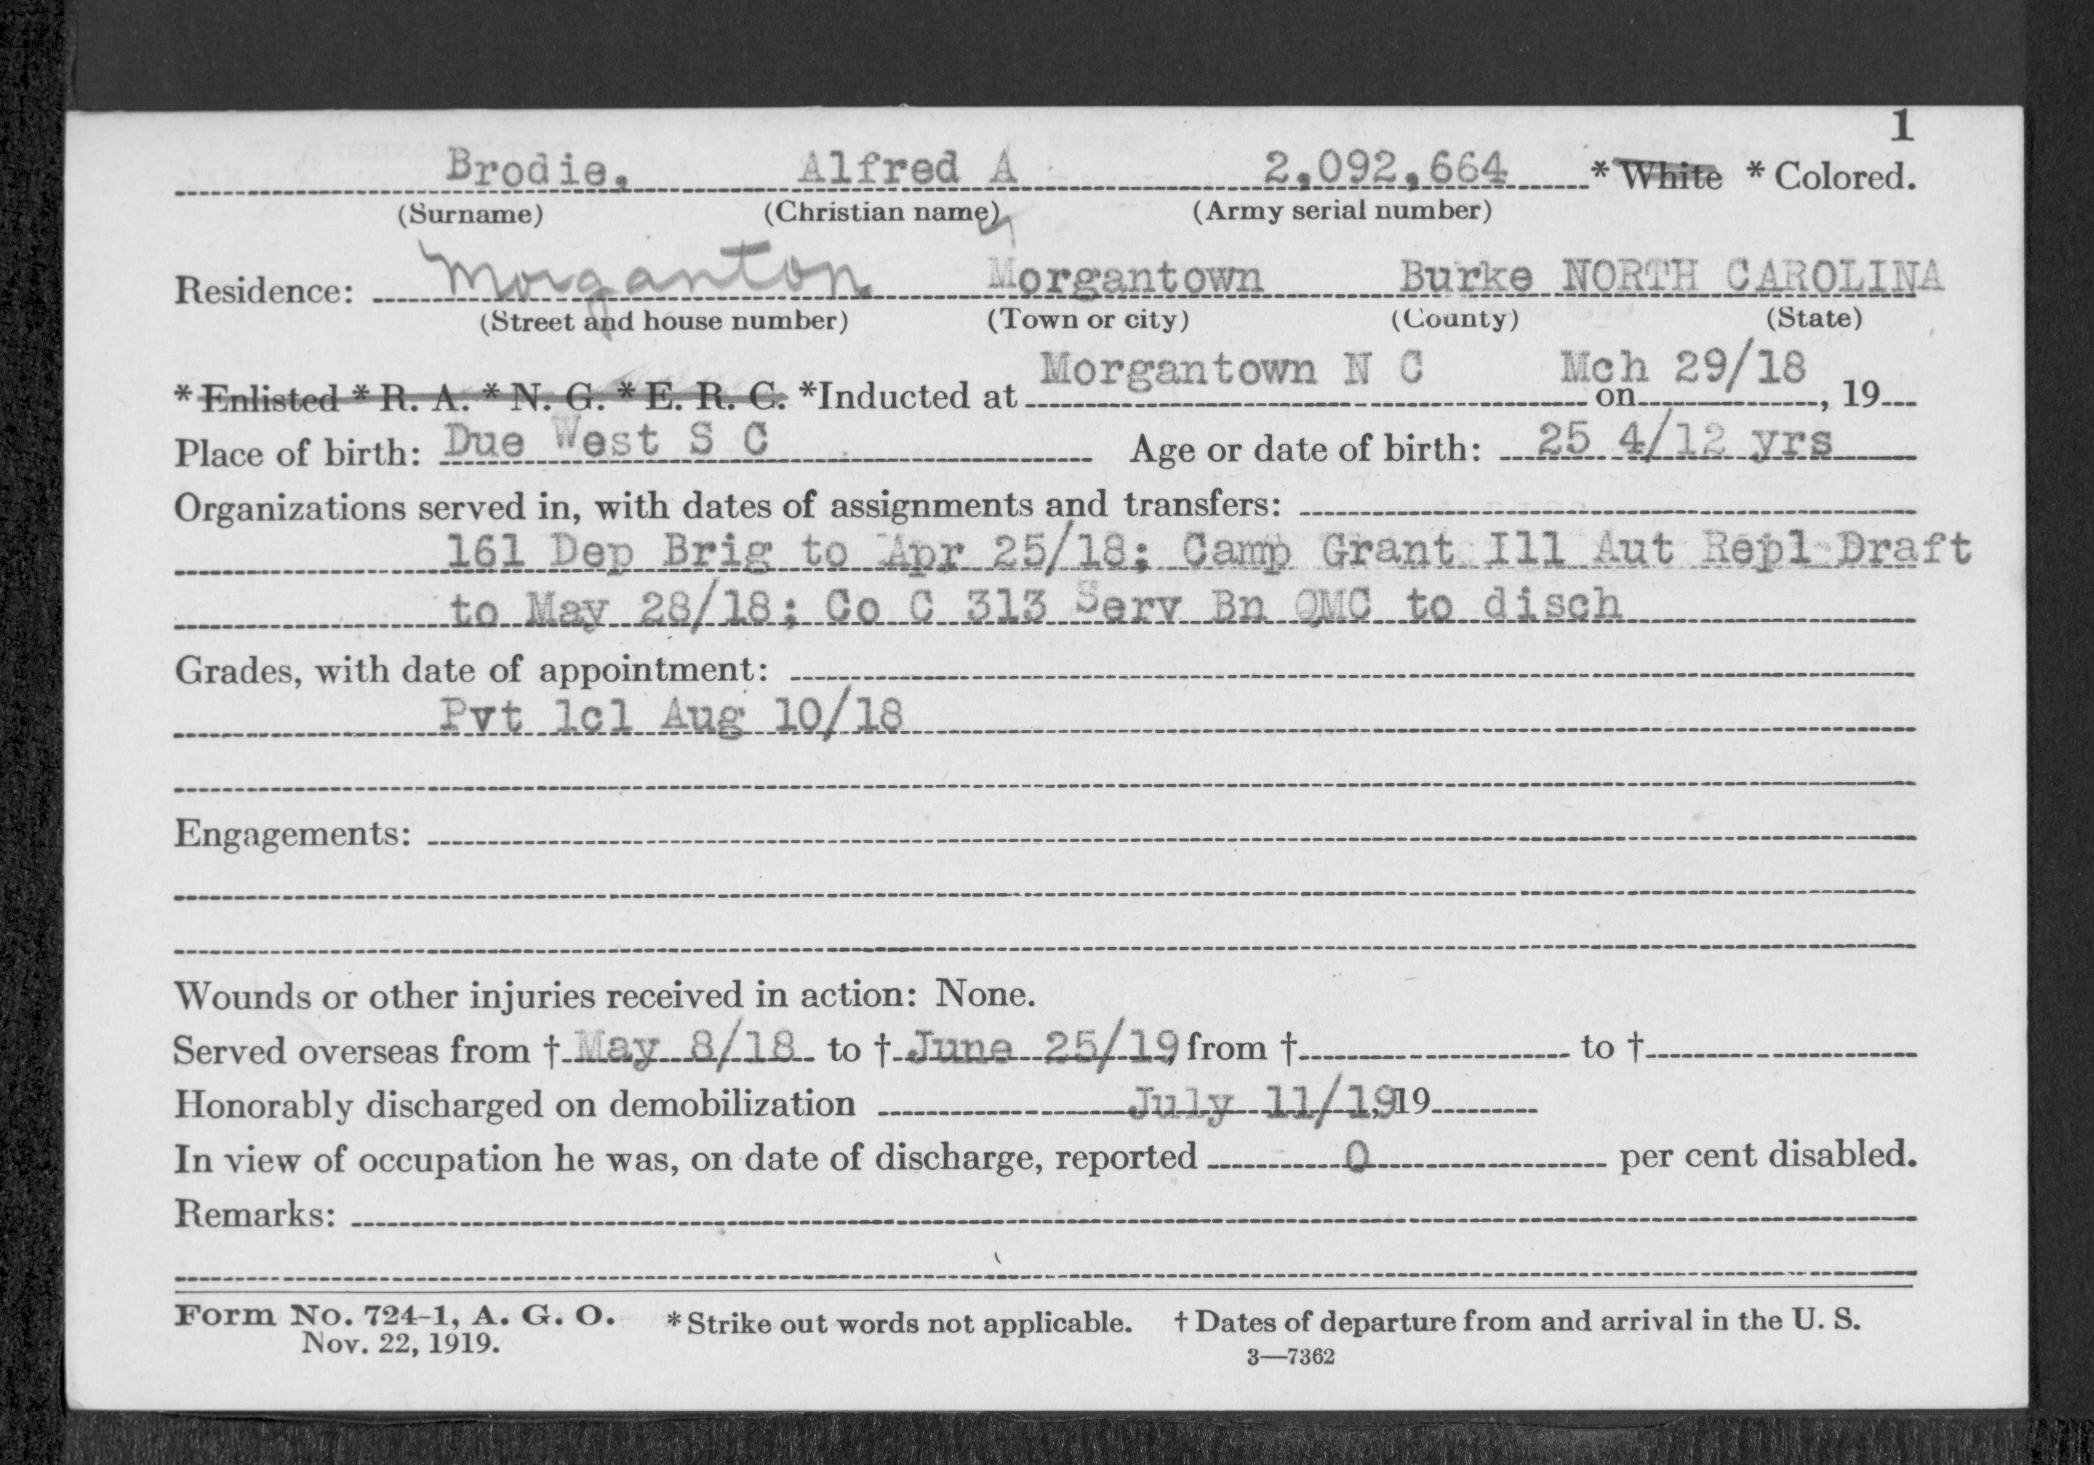 1
Brodie, Alfred A 2,092,664 * White * Colored.
(Surname) (Christian name) (Army serial number)
Residence: Morganton Morgantown Burke NORTH CAROLINA
(Street and house number) (Town or city) (County) (State)
* Enlisted * R. A. * N. G. * E. R. C. *Inducted at Morgantown N C on Mch 29/18, 19
Place of birth: Due West S C Age or date of birth: 25 4/12 yrs
Organizations served in, with dates of assignments and transfers:
161 Dep Brig to Apr 25/18; Camp Grant Ill Aut Repl Draft
to May 28/18; Co C 313 Serv Bn QMC to disch
Grades, with date of appointment:
Pvt 1cl Aug 10/18
Engagements:
Wounds or other injuries received in action: None.
Served overseas from † May 8/18 to † June 25/19, from † to †
Honorably discharged on demobilization July 11/19, 19
In view of occupation he was, on date of discharge, reported 0 per cent disabled.
Remarks:
Form No. 724-1, A. G. O. * Strike out words not applicable. † Dates of departure from and arrival in the U. S.
Nov. 22, 1919. 3—7362